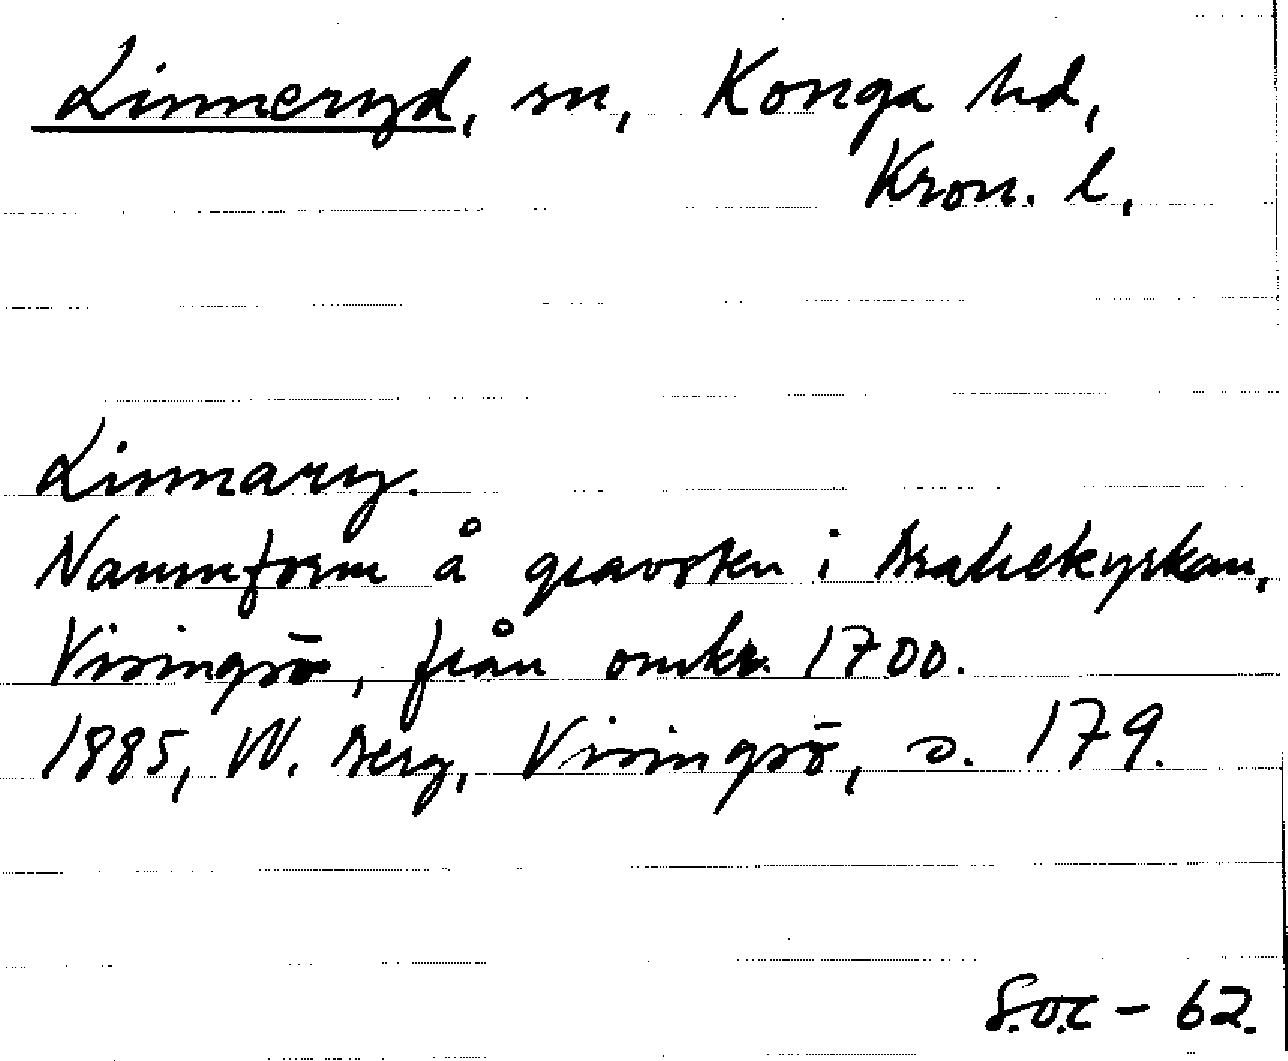 Linneryd, sn, Konga hd,
Kron. l.
Linnary.
Namnform å gravsten i Brahekyrkan,
Visingsö, från omkr. 1700.
1885, W. Berg, Visingsö, s. 179.
S.O.C - 62.